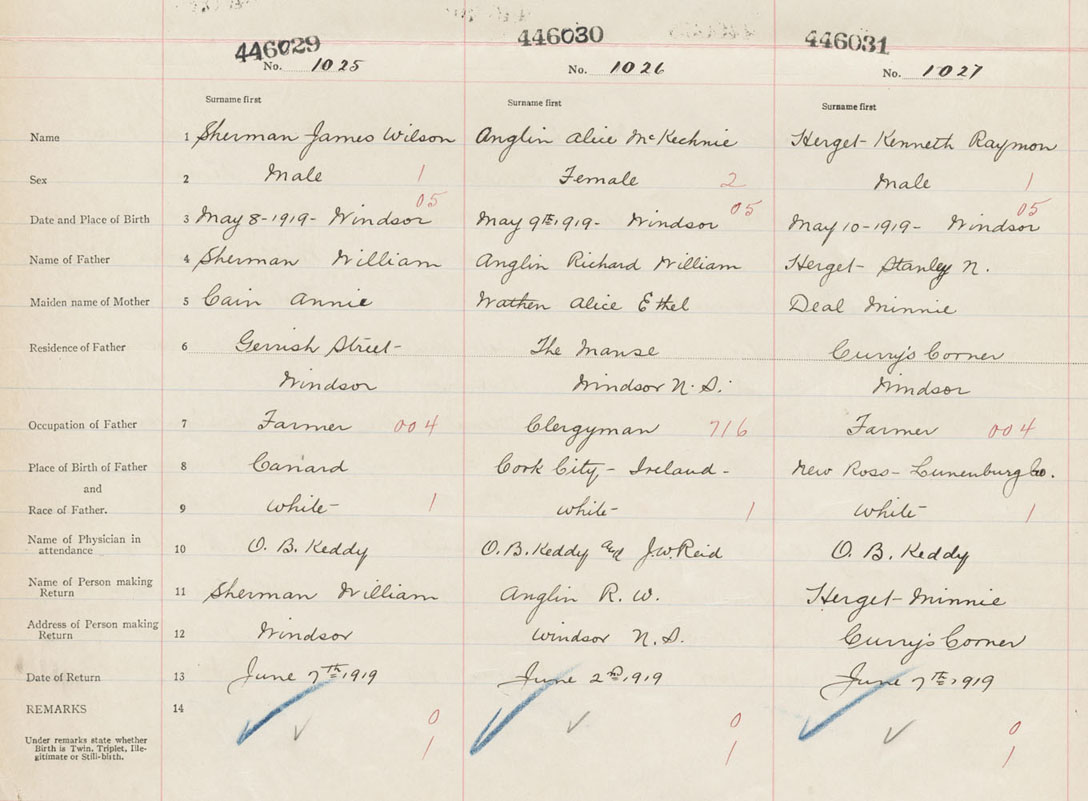 446029 446030 446031
No. 1025 No. 1026 No. 1027
Surname first Surname first Surname first
Name 1 Sherman James Wilson Anglin Alice McKechnie Herget- Kenneth Raymon
Sex 2 Male 1 Female 2 Male 1
05 05 05
Date and Place of Birth 3 May 8-1919- Windsor May 9th, 1919- Windsor May 10-1919- Windsor
Name of Father 4 Sherman William Anglin Richard William Herget- Stanley N.
Maiden name of Mother 5 Cain Annie Wathen Alice Ethel Deal Minnie
Residence of Father 6 Gerrish Street- The Manse Curry's Corner
Windsor Windsor N.S. Windsor
Occupation of Father 7 Farmer 004 Clergyman 716 Farmer 004
Place of Birth of Father 8 Canard Cork City- Ireland- New Ross- Lunenburg Co.
and
Race of Father. 9 White- 1 White- 1 White- 1
Name of Physician in
attendance 10 O. B. Keddy O. B. Keddy and J.W. Reid O. B. Keddy
Name of Person making
Return 11 Sherman William Anglin R. W. Herget- Minnie
Address of Person making
Return 12 Windsor Windsor N.S. Curry's Corner
Date of Return 13 June 7th, 1919 June 2nd, 1919 June 7th, 1919
REMARKS 14
0 0 0
Under remarks state whether
Birth is Twin, Triplet, Ille-
gitimate or Still-birth.
1 1 1